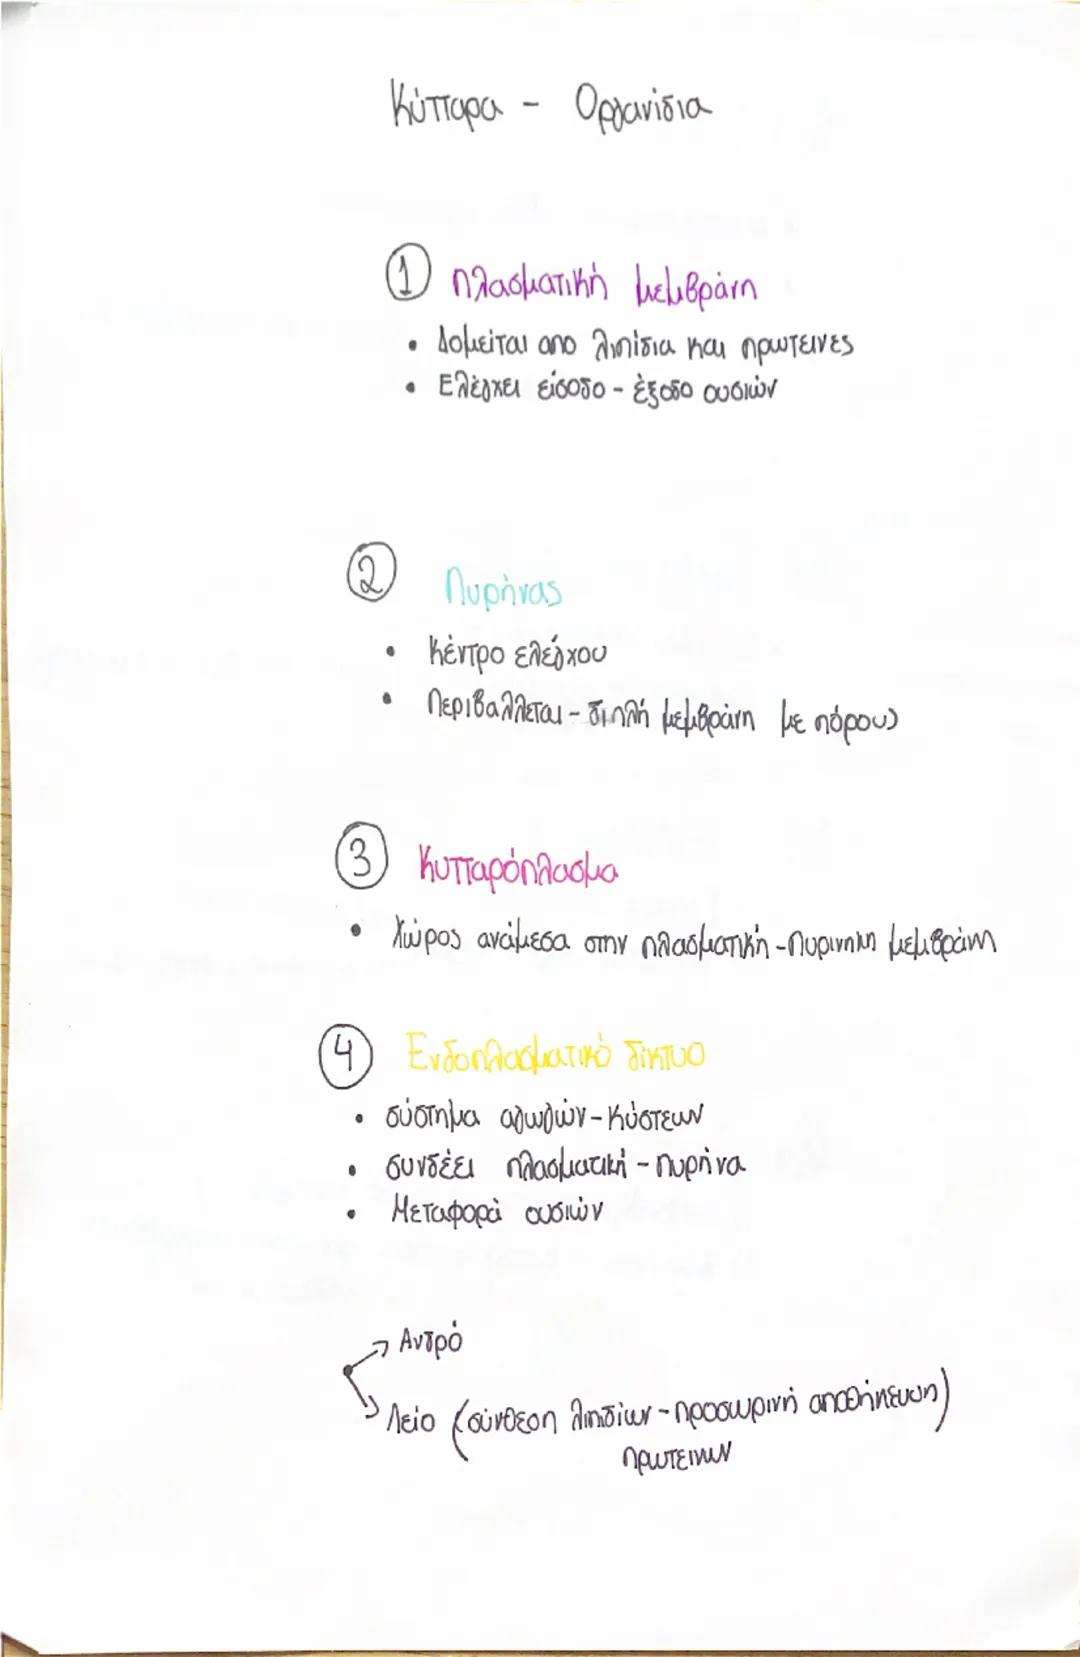 Κύτταρα - Οργανίδια
1 Πλασματική μεμβράνη
• Δομείται απο λιπίδια και πρωτεινες
• Ελέγχει είσοδο - έξοδο ουσιών
2 Πυρήνας
• Κέντρο ελέγχου
• Περιβαλλεται - διπλή μεμβράνη με πόρους
3 Κυτταρόπλασμα
• Χώρος ανάμεσα στην πλασματική - πυρινικη μεμβράνη
4 Ενδοπλασματικό δίκτυο
• σύστημα αγωγών - κύστεων
• συνδέει πλασματική - πυρήνα
• Μεταφορά ουσιών
→ Αδρό
→ Λείο (σύνθεση λιπιδίων - προσωρινή αποθήκευση)
πρωτεινων